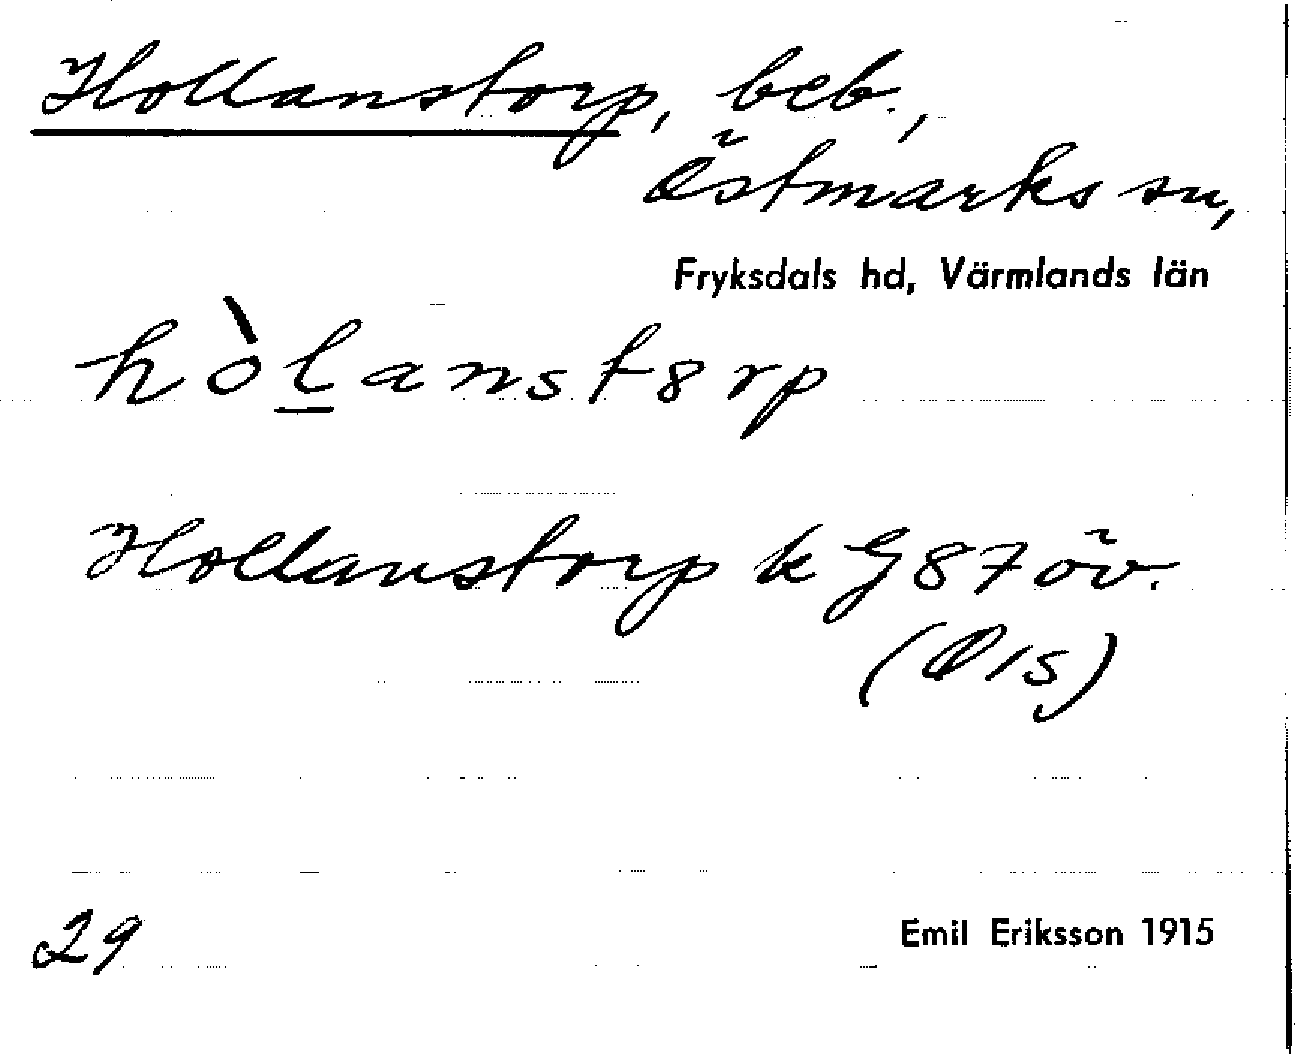 Hollanstorp, beb.,
Östmarks sn,
Fryksdals hd, Värmlands län
hòl̲anst8rp
Hollanstorp k G87 öv.
(Ö1s)
29
Emil Eriksson 1915